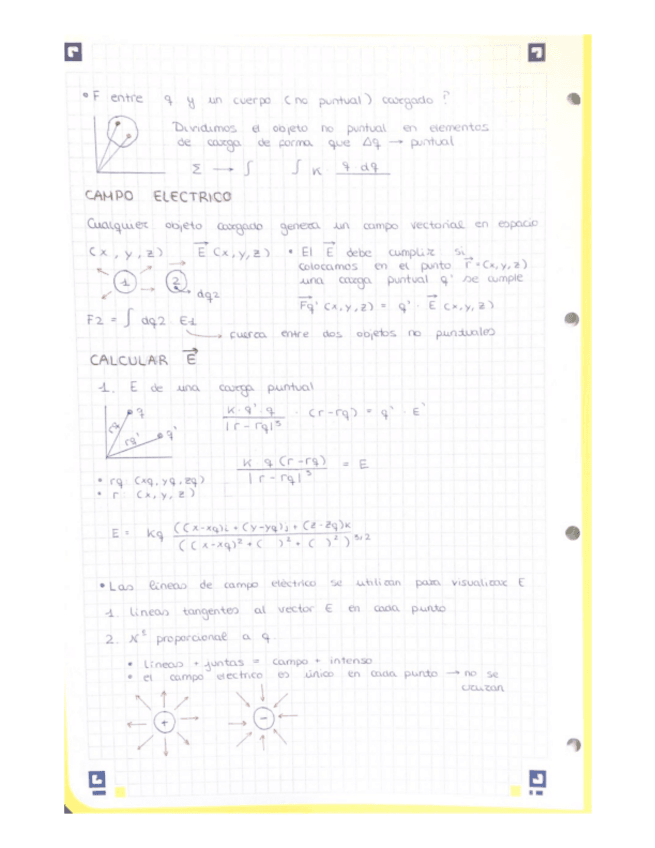 • F entre q y un cuerpo (no puntual) cargado ?
Dividimos el objeto no puntual en elementos
de carga de forma que Δq → puntual
Σ → ∫ ∫ K · q · dq
CAMPO ELECTRICO
Cualquier objeto cargado genera un campo vectorial en espacio
(x, y, z) E⃗ (x, y, z)
• El E⃗ debe cumplir si
colocamos en el punto r⃗ = (x, y, z)
una carga puntual q' se cumple
1 2 dq2
F⃗q' (x, y, z) = q' · E⃗ (x, y, z)
F2 = ∫ dq2 · E1
→ fuerza entre dos objetos no puntuales
CALCULAR E⃗
1. E de una carga puntual
q q' rq'
K · q' · q / |r - rq|³ · (r - rq) = q' · E'
K q (r - rq) / |r - rq|³ = E
• rq (xq, yq, zq)
• r (x, y, z)
E = Kq ((x-xq)i + (y-yq)j + (z-zq)k / ((x-xq)² + ( )² + ( )²)^3/2
• Las lineas de campo eléctrico se utilizan para visualizar E
1. Lineas tangentes al vector E en cada punto
2. Nº proporcional a q
• Lineas + juntas = campo + intenso
• el campo electrico es único en cada punto → no se
cruzan
+ -